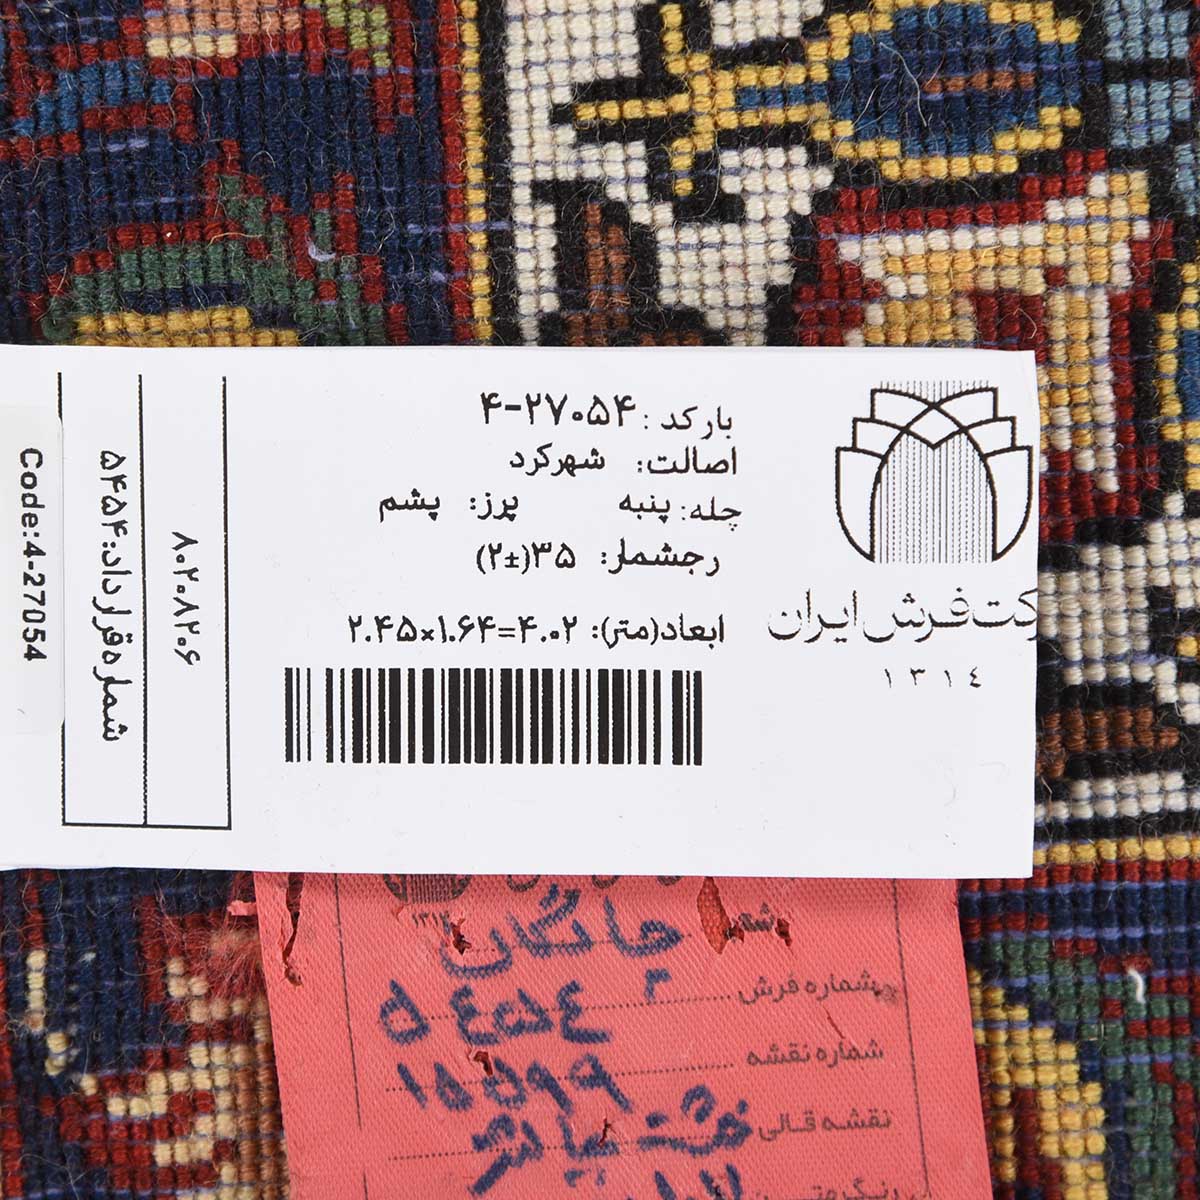 بارکد: ۴-۲۷۰۵۴
اصالت: شهرکرد
چله: پنبه پرز: پشم
رجشمار: ۳۵(±۲)
ابعاد(متر): ۲.۴۵×۱.۶۴=۴.۰۲
کت فرش ایران
۱۳۱٤
۸۰۲۰۸۲۰۶
شماره قرارداد: ۵۴۵۴
Code:4-27054
۱۳۱٤
شعبه
شماره فرش
شماره نقشه
نقشه قالی